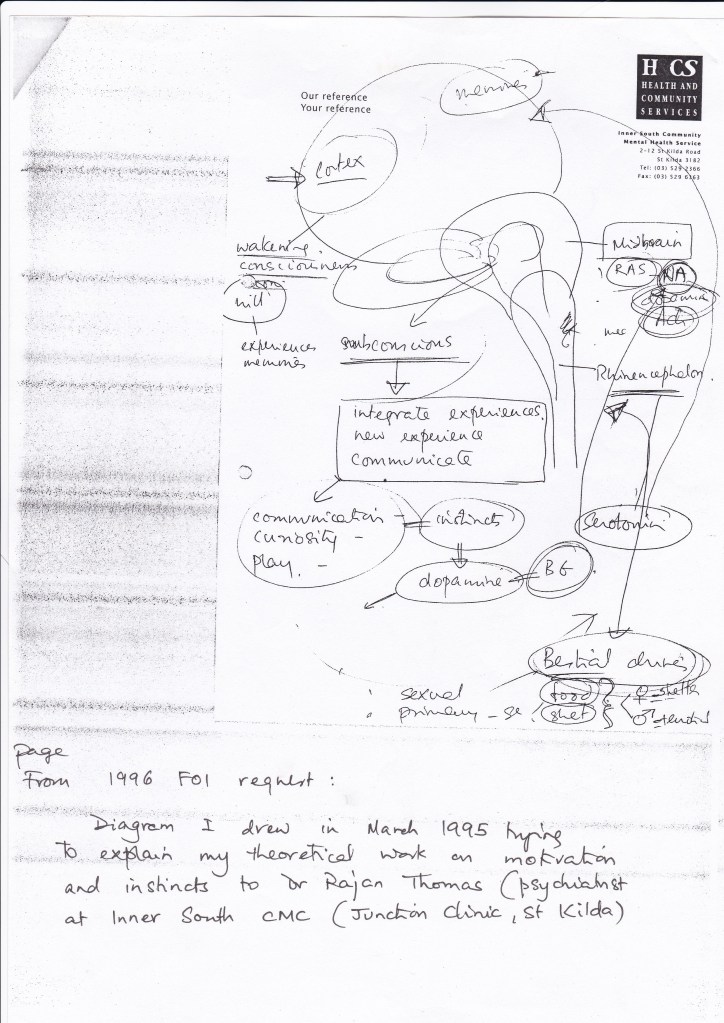 H CS
HEALTH AND
COMMUNITY
SERVICES
Our reference
Your reference
memories
Inner South Community
Mental Health Service
2-12 St Kilda Road
St Kilda 3182
Tel: (03) 529 2366
Fax: (03) 529 6363
cortex
wakening
consciousness
will
experiences
memories
Midbrain
RAS NA
dopamine
subconscious
Rhinencephalon
integrate experiences
new experience
communicate
communication
curiosity -
play. -
instincts
serotonin
dopamine
BG
Bestial drives
sexual
primary
food
shel
♀ shelter
♂
page
From 1996 FOI request :
Diagram I drew in March 1995 trying
to explain my theoretical work on motivation
and instincts to Dr Rajan Thomas (psychiatrist
at Inner South CMC (Junction Clinic, St Kilda)